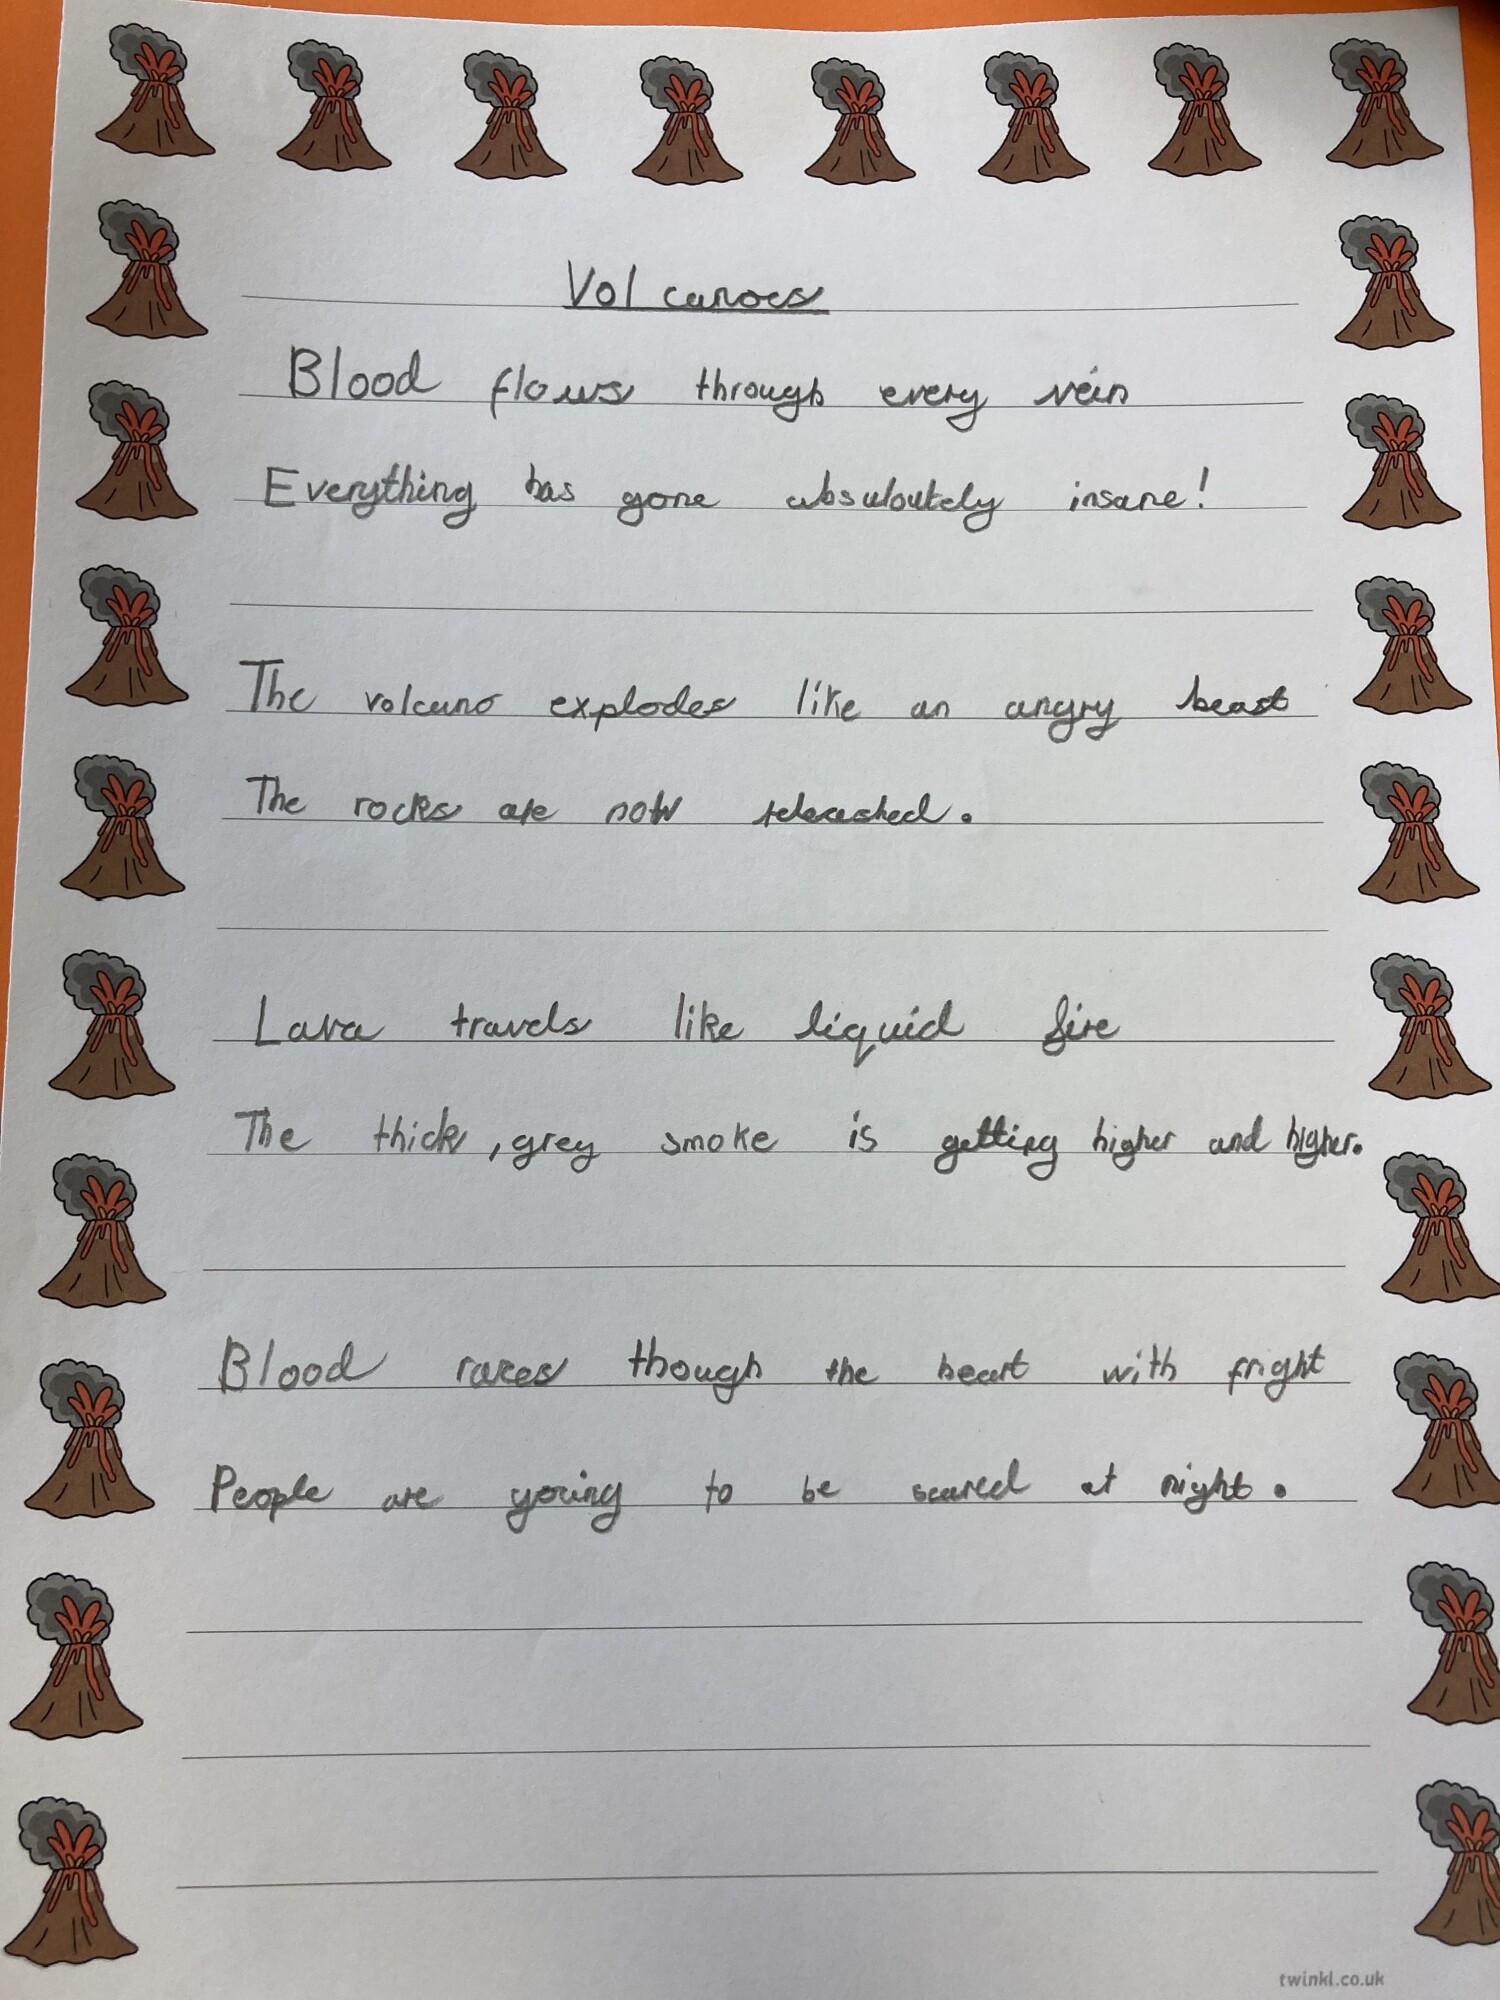 Volcanoes
Blood flows through every vein
Everything has gone absuloutely insane!
The volcano explodes like an angry beast
The rocks are now releashed.
Lava travels like liquid fire
The thick, grey smoke is getting higher and higher.
Blood races though the heart with fright
People are going to be scared at night.
twinkl.co.uk